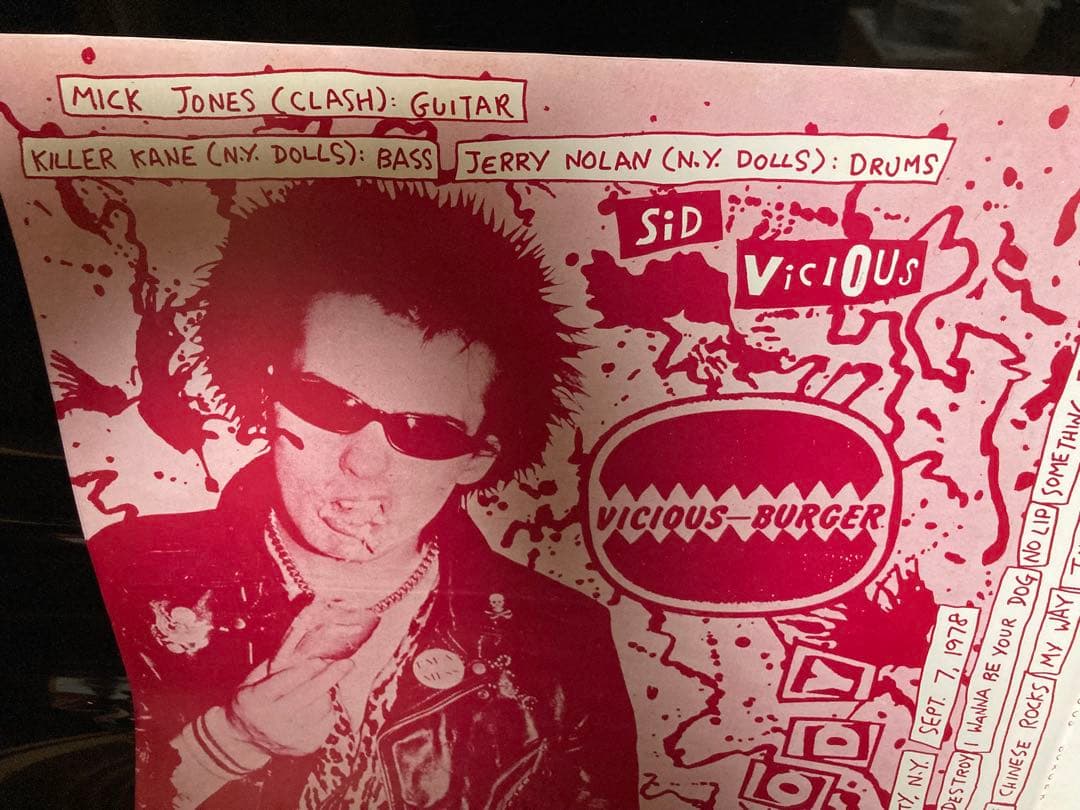 MICK JONES (CLASH): GUITAR
KILLER KANE (N.Y. DOLLS): BASS
JERRY NOLAN (N.Y. DOLLS): DRUMS
SiD
ViciOUS
VICIOUS-BURGER
I'M A MESS
Y
D
O
Y, N.Y. SEPT. 7, 1978
DESTROY I WANNA BE YOUR DOG NO LIP SOMETHING
CHINESE ROCKS MY WAY